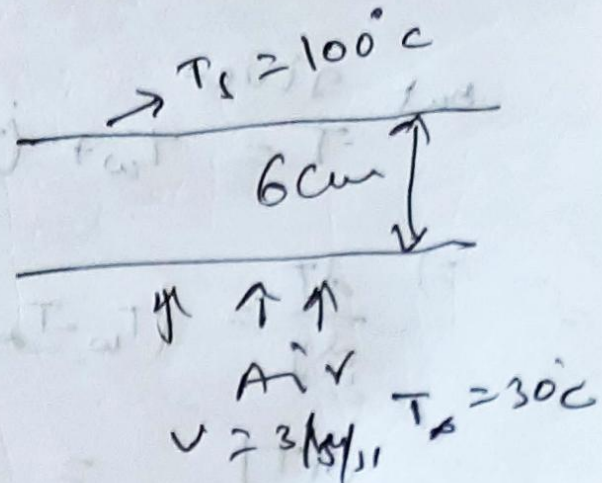 Ts = 100°C
6 cm
Air
V = 3 T∞ = 30°C